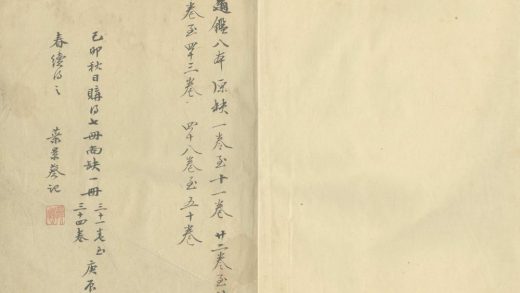 通鑑八本原缺一卷至十一卷 廿二卷至
卷至四十三卷 四十八卷至五十卷
己卯秋日購得七冊尚缺一冊 三十一卷至三十四卷 庚辰
春續得之 葉景葵記